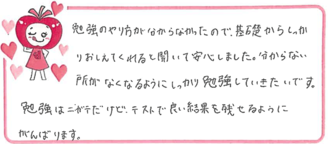 勉強のやり方が分からなかったので、基礎からしっか
りおしえてくれると聞いて安心しました。分からない
所がなくなるようにしっかり勉強していきたいです。
勉強はニガテだけど、テストで良い結果を残せるように
がんばります。